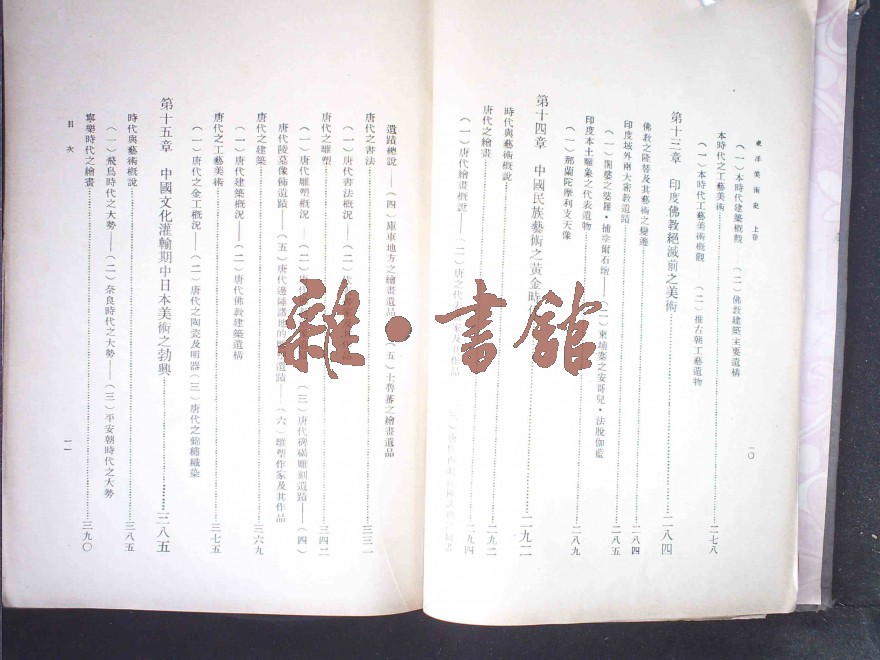 東洋美術史 上卷
一〇
(一)本時代建築概觀——(二)佛教建築主要遺構
本時代之工藝美術……二七八
(一)本時代工藝美術概觀——(二)推古朝工藝遺物
第十三章 印度佛教絕滅前之美術……二八四
佛教之隆替及其藝術之變遷……二八四
印度域外兩大密教遺蹟……二八五
(一)闍婆之婆羅・補塗爾石壇——(二)柬埔寨之安哥兒・法脫伽藍
印度本土顯象之代表遺物……二八九
(一)那蘭陀摩利支天像
第十四章 中國民族藝術之黃金時代……二九二
時代與藝術概說……二九二
唐代之繪畫……二九四
(一)唐代繪畫概說——(二)唐之代
遺蹟總說——(四)庫車地方之繪畫遺品——(五)土魯蕃之繪畫遺品
唐代之書法……三三一
(一)唐代書法概況——(二)
唐代之雕塑……三四二
(一)唐代雕塑概況——(二)唐代——(三)唐代碑碣雕刻遺蹟——(四)
唐代陵墓像飾遺蹟——(五)唐代邊陲諸地的遺蹟——(六)雕塑作家及其作品
唐代之建築……三六九
(一)唐代建築概況——(二)唐代佛教建築遺構
唐代之工藝美術……三七五
(一)唐代之金工概況——(二)唐代之陶瓷及明器(三)唐代之錦繡織染
第十五章 中國文化灌輸期中日本美術之勃興……三八五
時代與藝術概說……三八五
(一)飛鳥時代之大勢——(二)奈良時代之大勢——(三)平安朝時代之大勢
寧樂時代之繪畫……三九〇
目次
一一
雜・書館